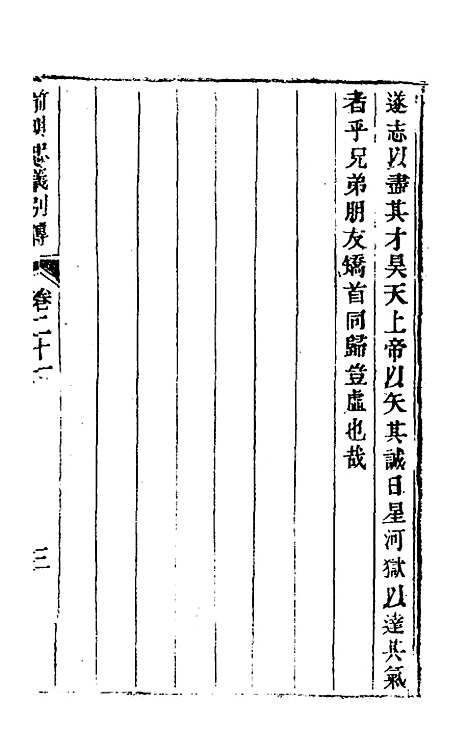 遂志以盡其才昊天上帝以矢其誠日星河獄以達其氣
者乎兄弟朋友矯首同歸豈虛也哉
前明忠義別傳
卷二十一
三